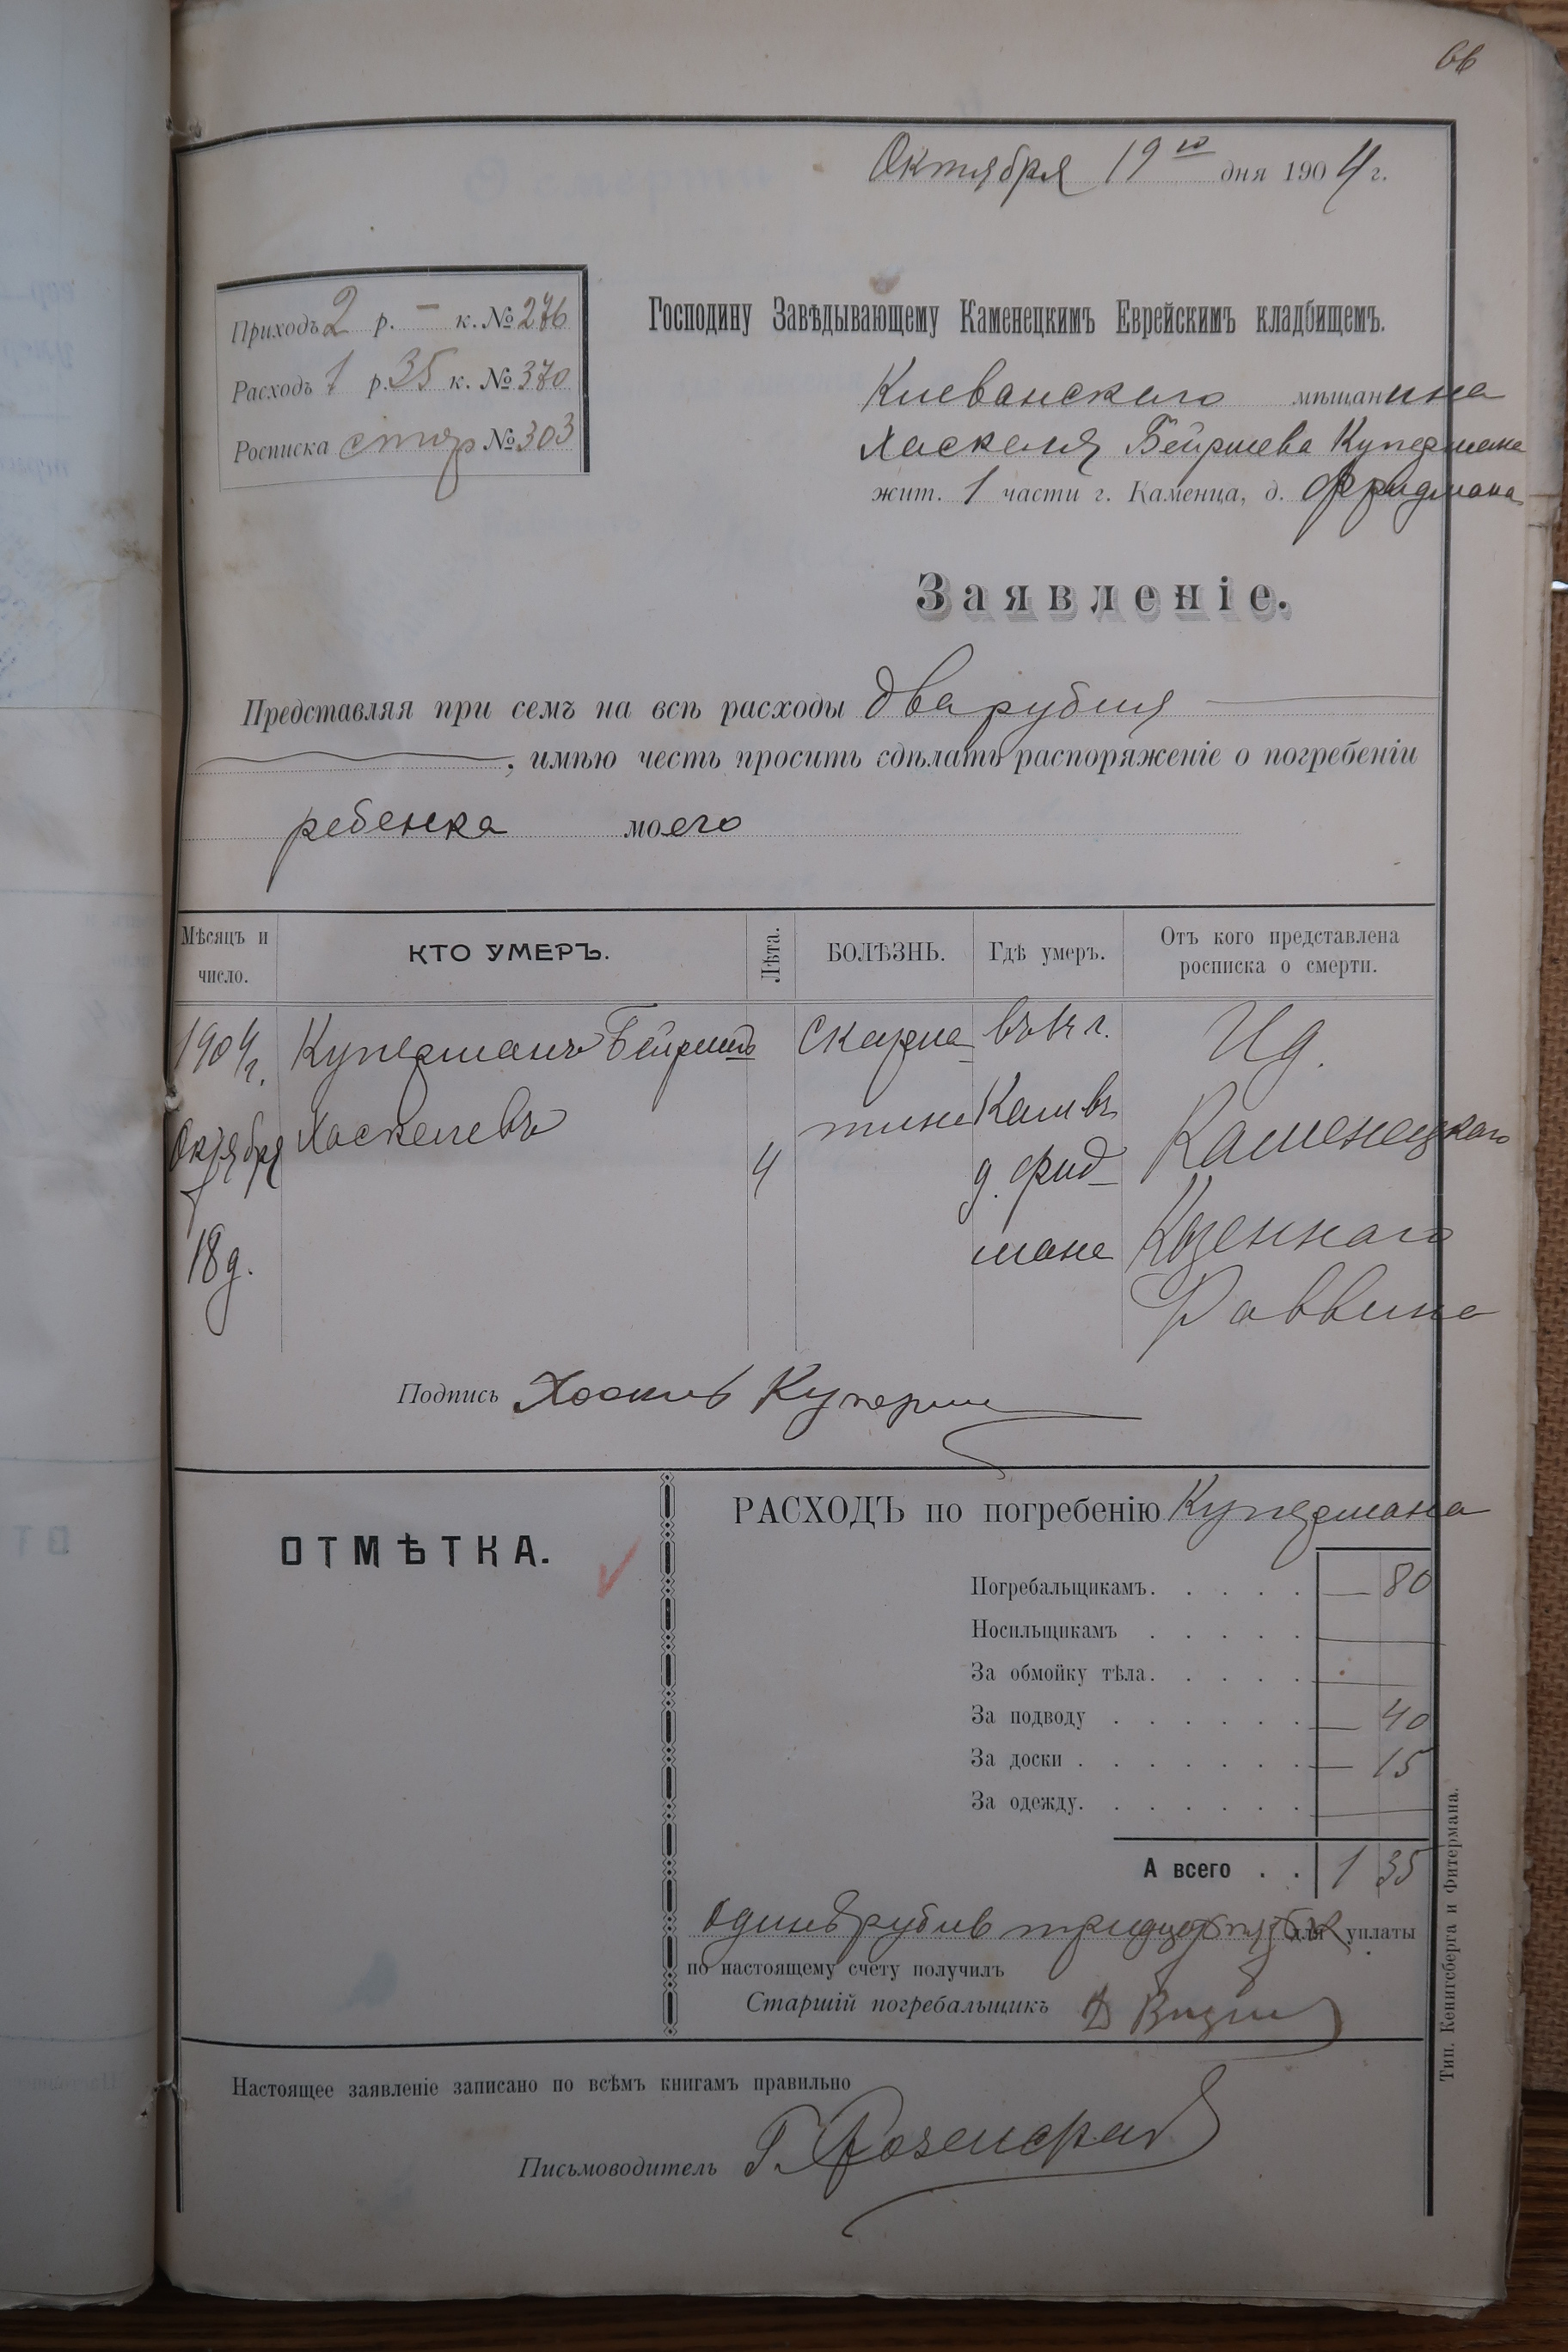 66
Октября 19го дня 1904 г.
Приходъ 2 р. – к. № 276
Расходъ 1 р. 35 к. № 370
Росписка № 303
Господину Завѣдывающему Каменецкимъ Еврейскимъ кладбищемъ.
Клеванскаго мѣщанина
Хаскеля Бейришева Купермана
жит. 1 части г. Каменца, д. Фридмана
Заявленіе.
Представляя при семъ на всѣ расходы два рубля
, имѣю честь просить сдѣлать распоряженіе о погребеніи
ребенка моего
Мѣсяцъ и число.
КТО УМЕРЪ.
Лѣта.
БОЛѢЗНЬ.
Гдѣ умеръ.
Отъ кого представлена росписка о смерти.
1904 г. Куперманъ Бейришъ Скарла въ г. Ид.
Октября Хаскелевъ 4 тина Кам въ Каменецкаго
18 д. д. Фридмана Казеннаго
Раввина
Подпись Хаскель Куперман
ОТМѢТКА.
РАСХОДЪ по погребенію Купермана
Погребальщикамъ. — 80
Носильщикамъ —
За обмойку тѣла. —
За подводу — 40
За доски — 15
За одежду. —
А всего 1 35
Одинъ рубль тридцать пять к для уплаты
по настоящему счету получилъ
Старшій погребальщикъ
Настоящее заявленіе записано по всѣмъ книгамъ правильно
Письмоводитель Г.
Тип. Кенигсберга и Фитермана.